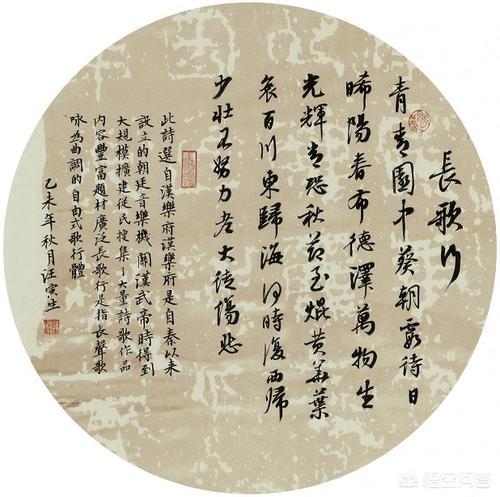 長歌行
青青園中葵朝露待日
晞陽春布德澤萬物生
光輝常恐秋節至焜黄華葉
衰百川東歸海何時復西歸
少壯不努力老大徒傷悲
此詩選自漢樂府漢樂府是自秦以来
設立的朝廷音樂機關漢武帝時得到
大規模擴建從民搜集了大量詩歌作品
内容豐富題材廣泛長歌行是指長聲歌
咏為曲調的自由式歌行體
乙未年秋月汪寅生
悟空问答